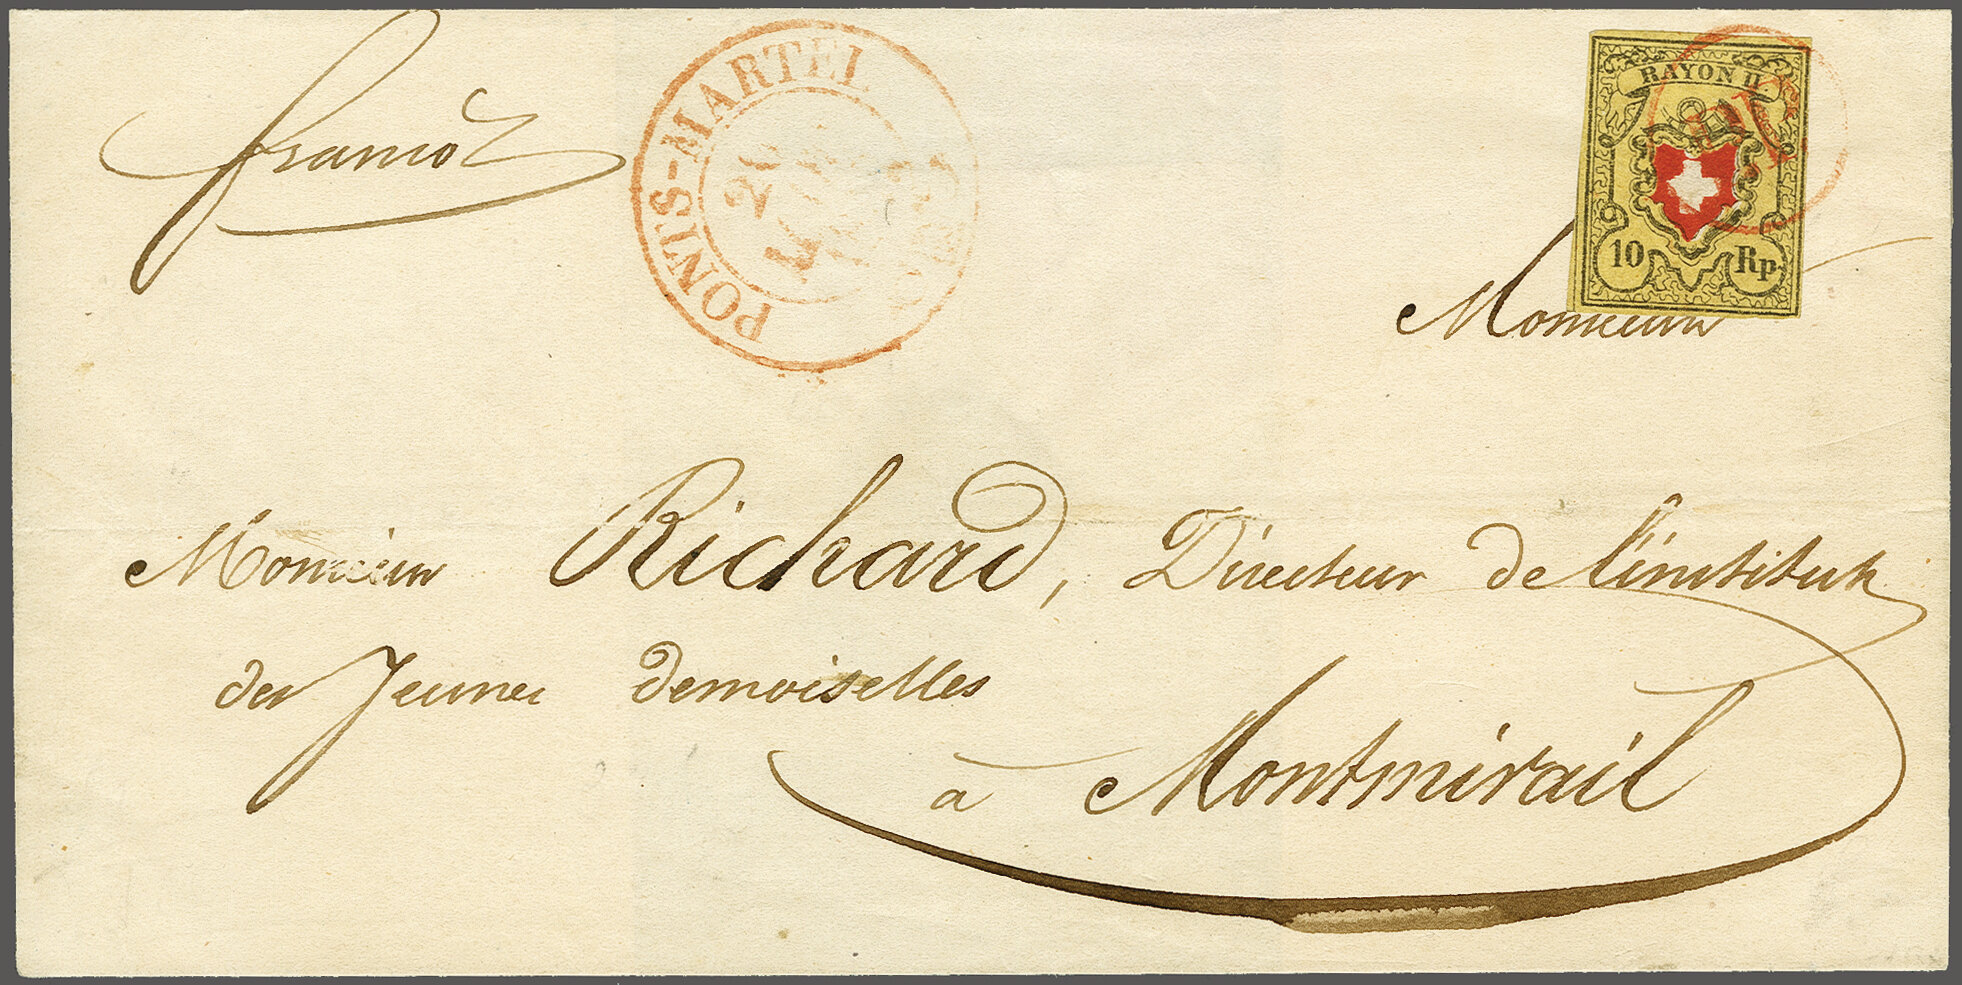 franco
PONTS-MARTEL
20
RAYON II
10 Rp.
Monsieur
Monsieur Richard, Directeur de l'institut
des Jeunes demoiselles
à Montmirail